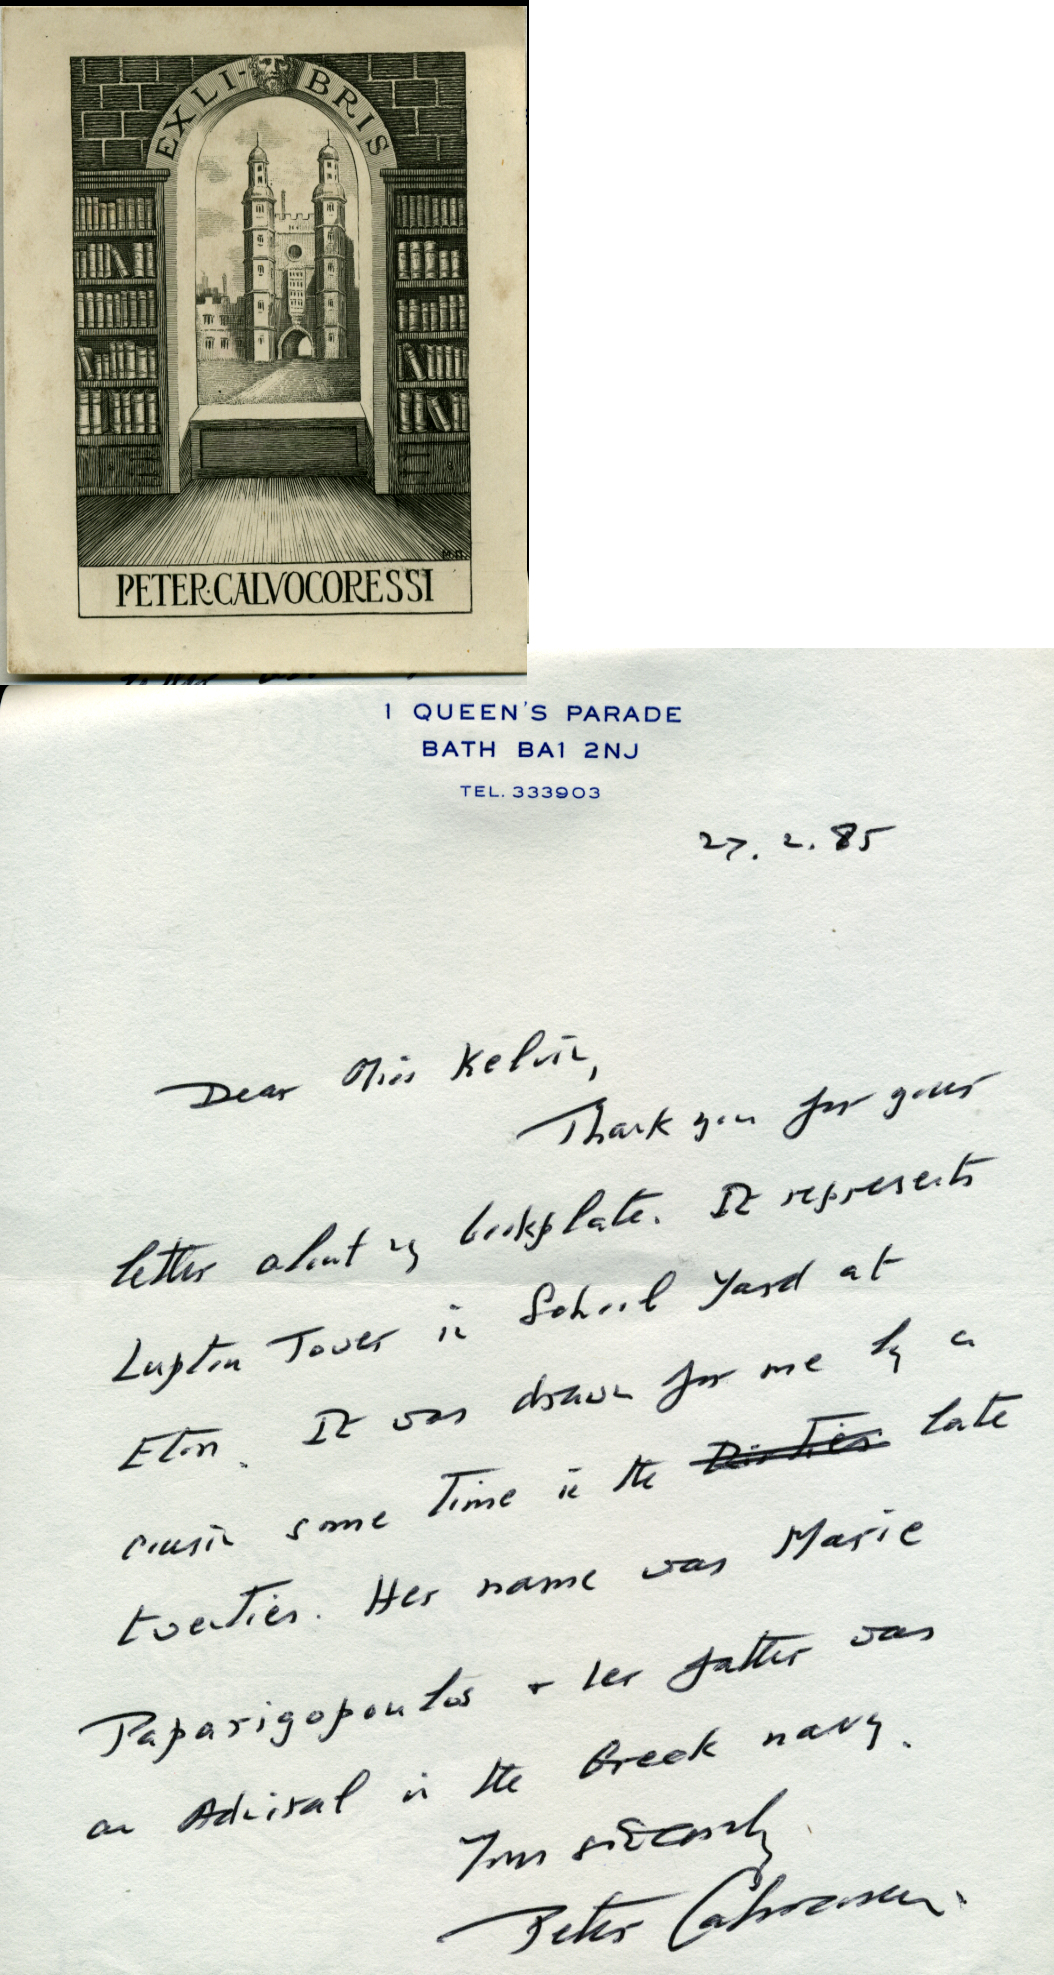 EX LI-BRIS
M.П.
PETER·CALVOCORESSI
1 QUEEN'S PARADE
BATH BA1 2NJ
TEL. 333903
27. 2. 85
Dear Miss Kelvin,
Thank you for your
letter about my bookplate. It represents
Lupton Tower in School Yard at
Eton. It was drawn for me by a
cousin some time in the thirties late
twenties. Her name was Marie
Paparigopoulos + her father was
an Admiral in the Greek navy.
Yours sincerely
Peter Calvocoressi